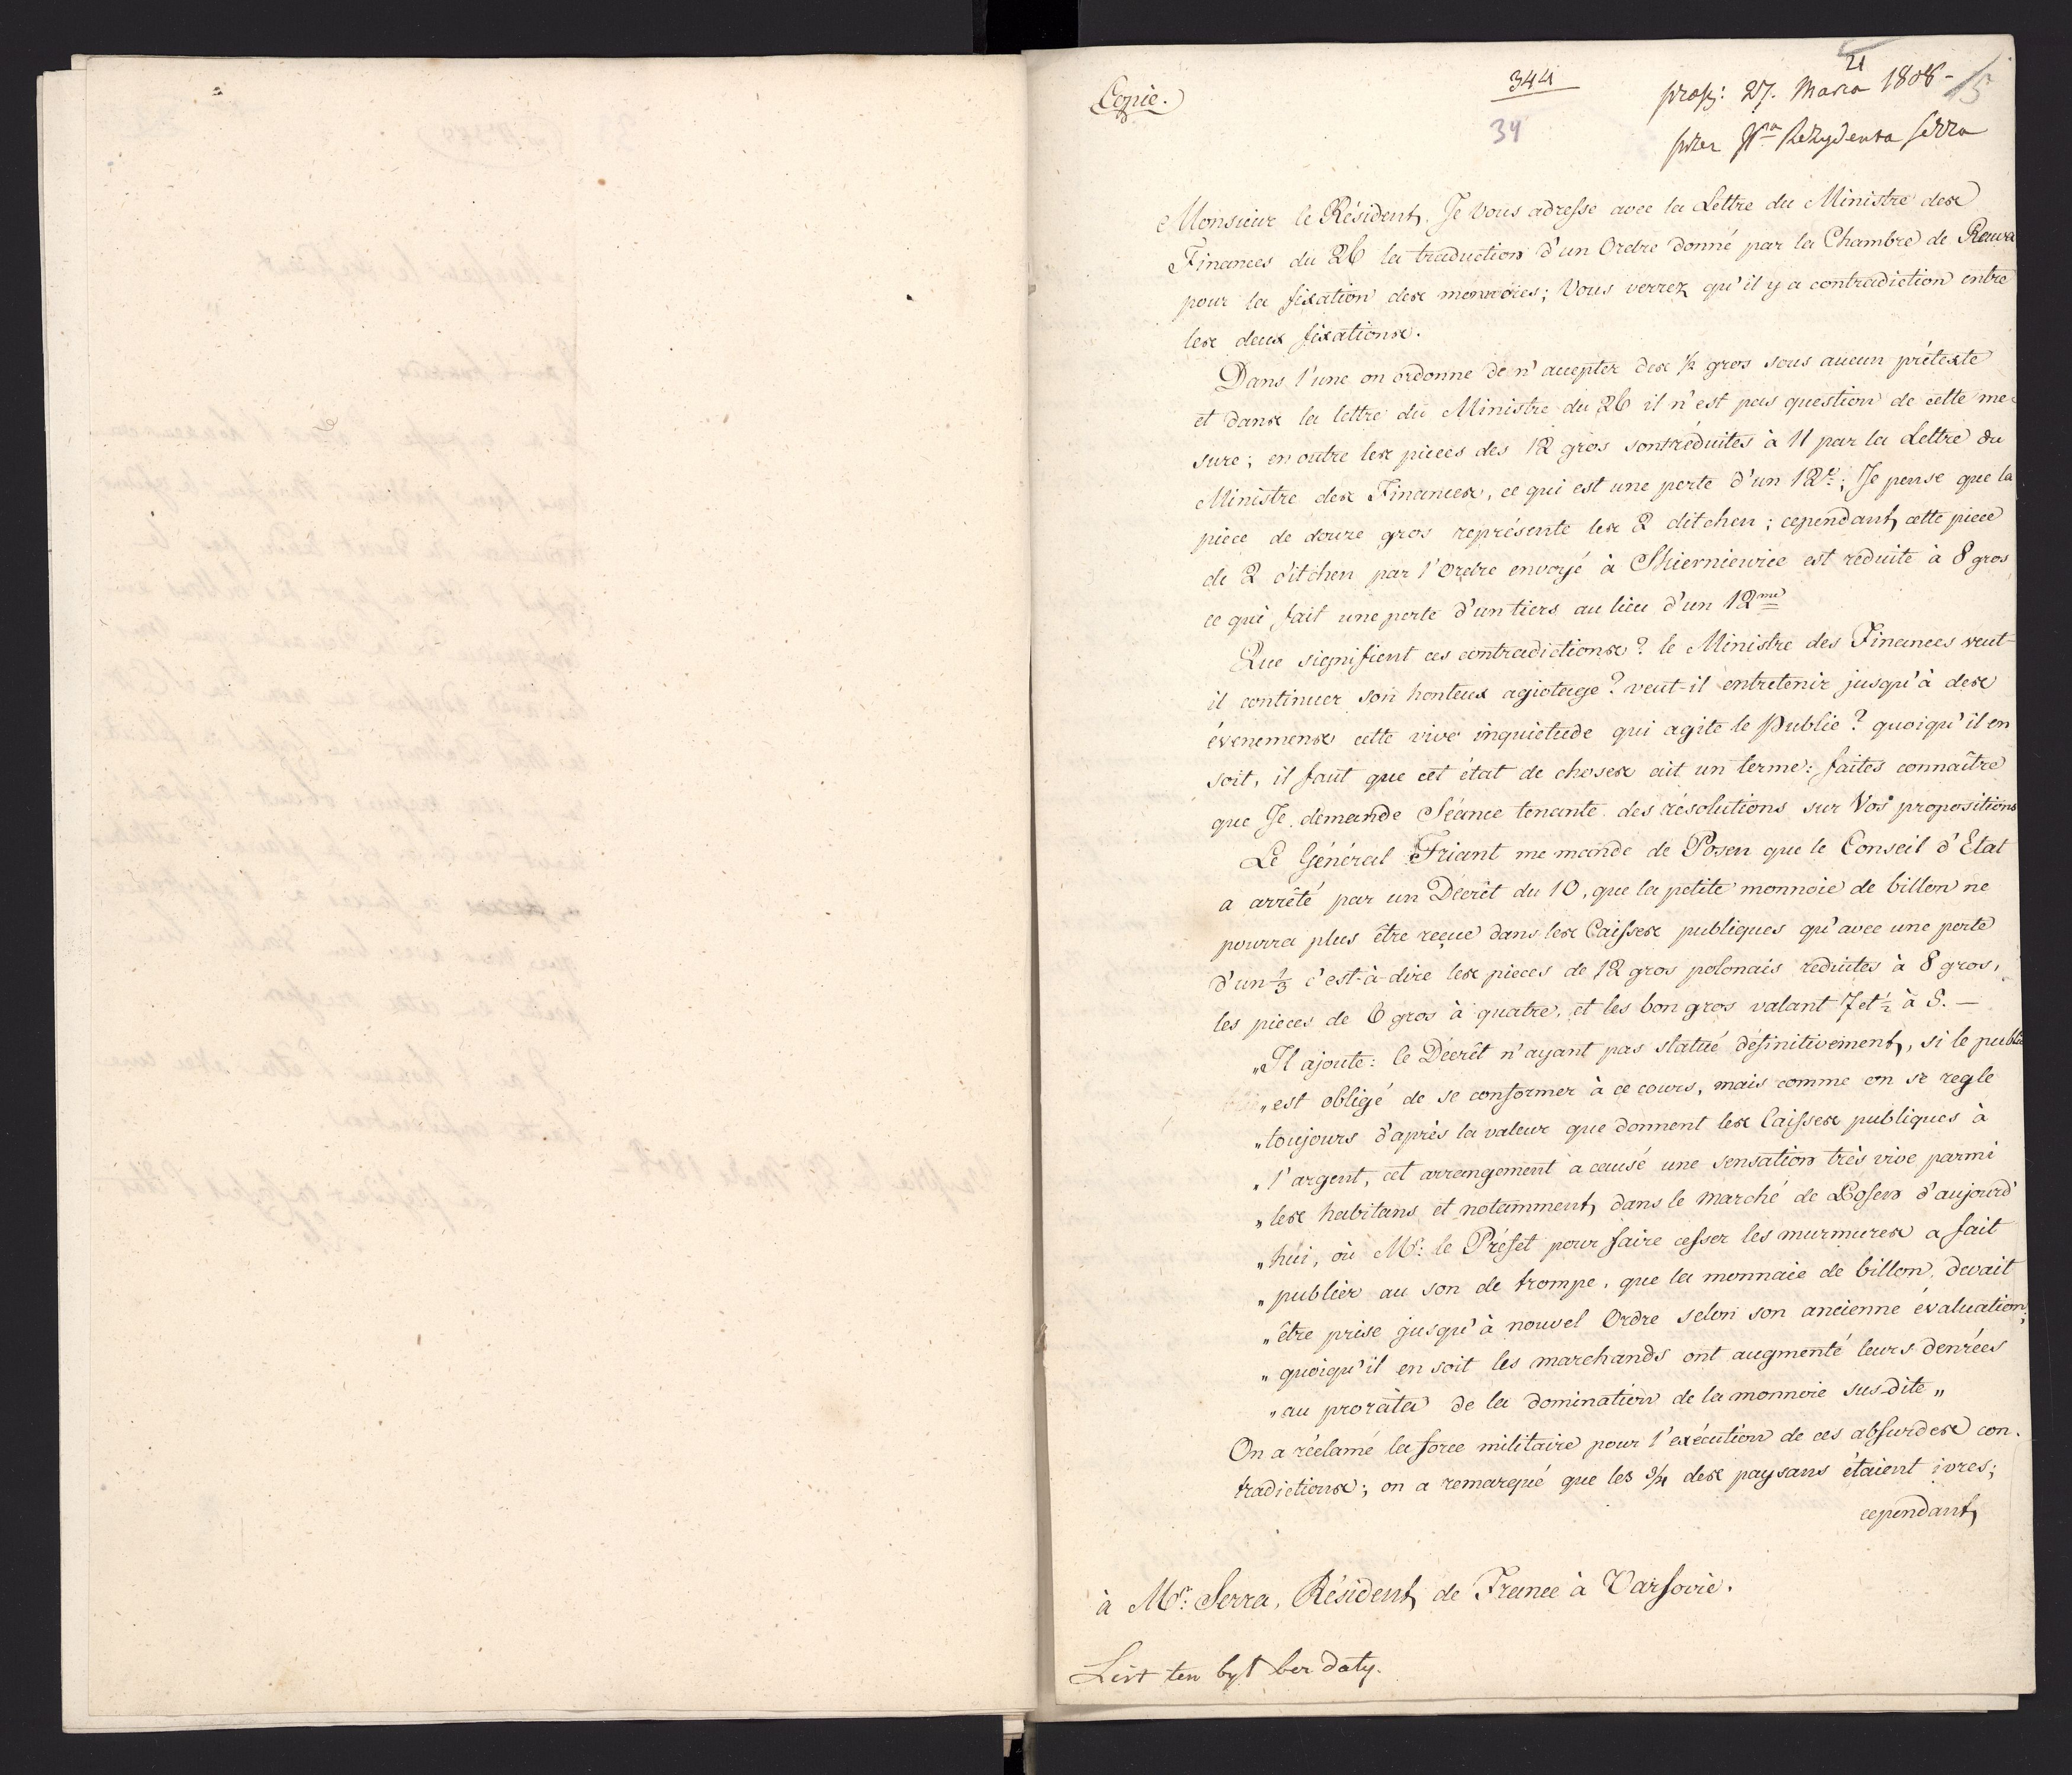 Copie.
344
34
21
15
27. Marca 1808 -
przez Rezydenta Serra
Monsieur le Résident, Je vous adresse avec la Lettre du Ministre des
Finances du 26 la traduction d'un Ordre donné par la Chambre de Rawa
pour la fixation des monnoies; Vous verrez qu'il y a contradiction entre
les deux fixations.
Dans l'une on ordonne de n'accepter des ½ gros sous aucun prétexte
et dans la lettre du Ministre du 26 il n'est pas question de cette me-
sure; en outre les pieces des 12 gros sont réduites à 11 par la Lettre du
Ministre des Finances, ce qui est une perte d'un 12e; Je pense que la
piece de douze gros représente les 2 ditchen; cependant cette piece
de 2 ditchen par l'Ordre envoyé à Skierniewice est réduite à 8 gros
ce qui fait une perte d'un tiers au lieu d'un 12me
Que signifient ces contradictions? le Ministre des Finances veut-
il continuer son honteux agiotage? veut-il entretenir jusqu'à des
évenemens cette vive inquiétude qui agite le Public? quoiqu'il en
soit, il faut que cet état de choses ait un terme: faites connaître
que Je demande Séance tenante des résolutions sur Vos propositions
Le Général Friant me mande de Posen que le Conseil d'Etat
a arrêté par un Décrêt du 10, que la petite monnoie de billon ne
pourra plus être reçue dans les Caisses publiques qu'avec une perte
d'un ⅓ c'est-à-dire les pieces de 12 gros polonais reduites à 8 gros,
les pieces de 6 gros à quatre, et les bon gros valant 7 et ½ à 5. —
„Il ajoute: le Décrêt n'ayant pas statué définitivement, si le public
„est obligé de se conformer à ce cours, mais comme on se regle
„toujours d'après la valeur que donnent les Caisses publiques à
„l'argent, cet arrangement a causé une sensation très vive parmi
„les habitans et notamment dans le marché de Posen d'aujourd'
„hui, où Mr: le Préfet pour faire cesser les murmures a fait
„publier au son de trompe, que la monnaie de billon devait
„être prise jusqu'à nouvel Ordre selon son ancienne évaluation;
„quoiqu'il en soit les marchands ont augmenté leurs denrées
„au prorata de la domination de la monnoie susdite„
On a réclamé la force militaire pour l'exécution de ces absurdes con-
tradictions; on a remarqué que les ¾ des paysans étaient ivres;
cependant
à Mr: Serra, Résident de France à Varsovie.
List ten był bez daty.